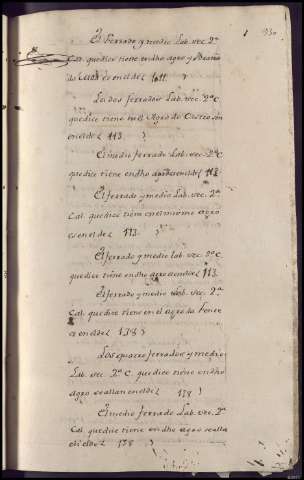 El ferrado y medio Lab. vec. 2ª
Cal. que dice tiene en dho agro y
do es en el de ( 1011 )
Los dos ferrados Lab. vec. 2ª C.
que dice tiene en el Agro de Castro son
en el de ( 113 )
El medio ferrado Lab. vec. 2ª C
que dice tiene en dho agro es en el de ( 112
El ferrado y medio Lab. vec. 2ª
Cal. que dice tiene en el mismo agro
es en el de ( 113 )
El ferrado y medio Lab. vec. 2ª C.
que dice tiene en dho agro es en el de ( 113
El ferrado y medio Lab. vec. 2ª
Cal. que dice tiene en el agro da
es en el de ( 138 )
Los quatro ferrados y medio
Lab. vec. 2ª C. que dice tiene en dho
agro se allan en el de ( 118 )
El medio ferrado Lab. vec. 2ª
Cal. que dice tiene en dho agro se alla
en el de ( 138 )